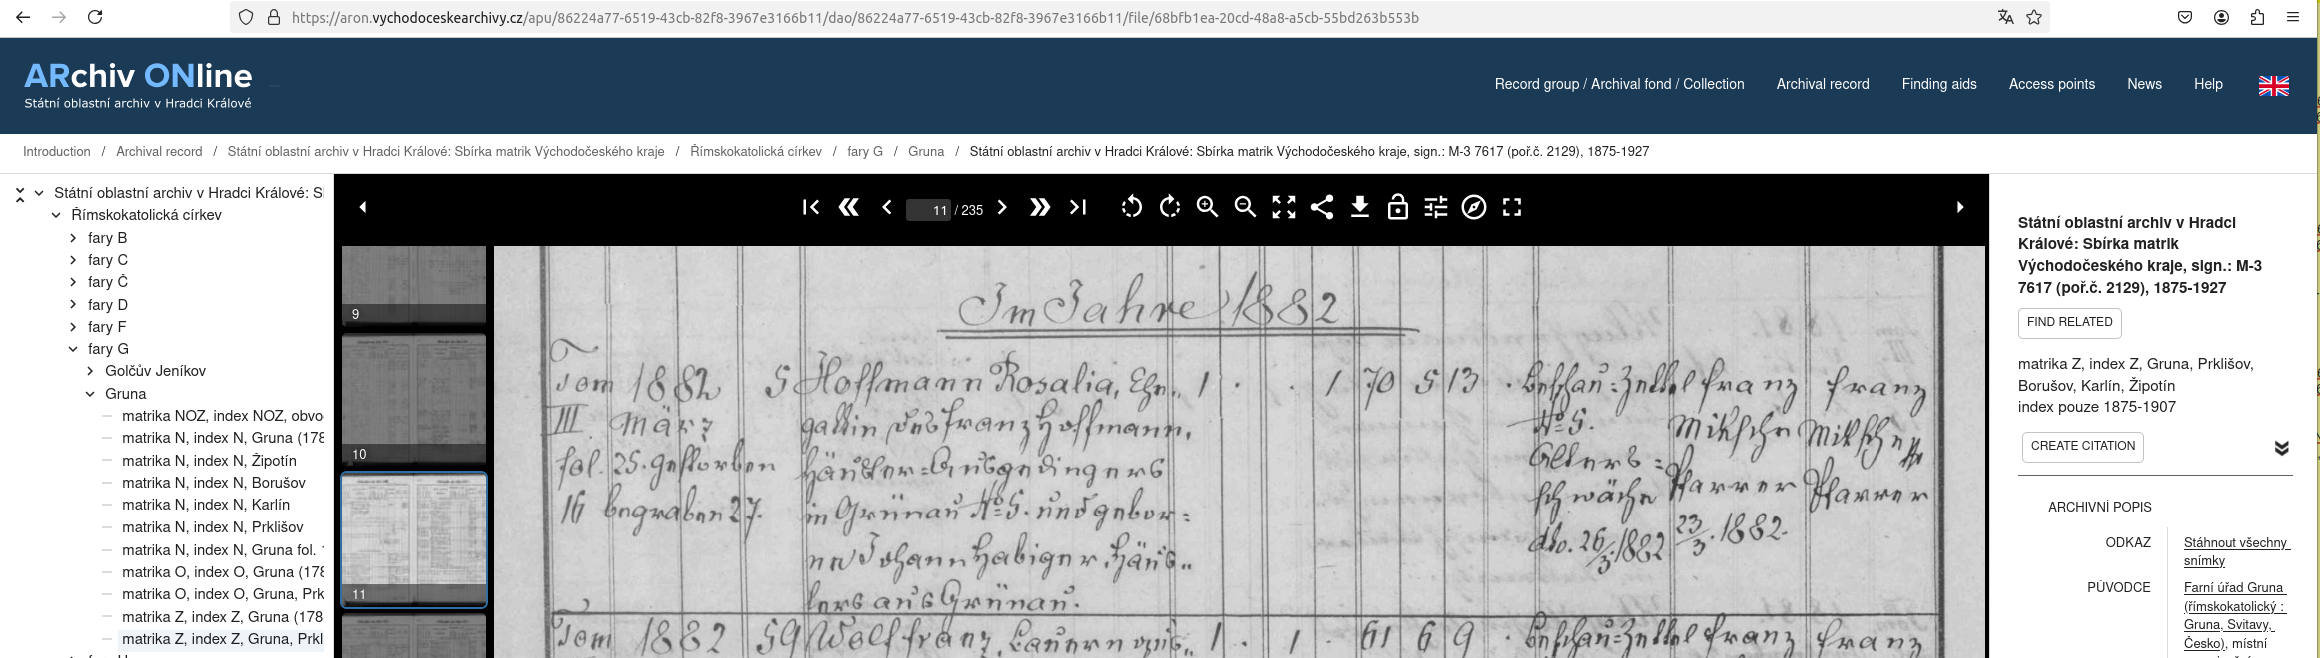 https://aron.vychodoceskearchivy.cz/apu/86224a77-6519-43cb-82f8-3967e3166b11/dao/86224a77-6519-43cb-82f8-3967e3166b11/file/68bfb1ea-20cd-48a8-a5cb-55bd263b553b
ARchiv ONline
Státní oblastní archiv v Hradci Králové
Record group / Archival fond / Collection Archival record Finding aids Access points News Help
Introduction / Archival record / Státní oblastní archiv v Hradci Králové: Sbírka matrik Východočeského kraje / Římskokatolická církev / fary G / Gruna / Státní oblastní archiv v Hradci Králové: Sbírka matrik Východočeského kraje, sign.: M-3 7617 (poř.č. 2129), 1875-1927
Státní oblastní archiv v Hradci Králové: S
Římskokatolická církev
fary B
fary C
fary Č
fary D
fary F
fary G
Golčův Jeníkov
Gruna
matrika NOZ, index NOZ, obvo
matrika N, index N, Gruna (178
matrika N, index N, Žipotín
matrika N, index N, Borušov
matrika N, index N, Karlín
matrika N, index N, Prklišov
matrika N, index N, Gruna fol.
matrika O, index O, Gruna (178
matrika O, index O, Gruna, Prk
matrika Z, index Z, Gruna (178
matrika Z, index Z, Gruna, Prkl
11 / 235
9
10
11
Im Jahre 1882
Tom 1882 5 Hoffmann Rosalia, Ehe- 1 . . 1 70 5 13 . Beschau-Zettel Franz Franz
III März gattin des Franz Hoffmann, No 5. Mitsche Mitsche
fol. 25. gestorben Häusler-Ausgedingers Alters- Pfarrer Pfarrer
16 begraben 27. in Grünau No 5. und gebor- schwäche
ne Johann Habiger, Häus- dto. 26/3. 1882 23/3. 1882.
lers aus Grünau.
Tom 1882 59 Wolf Franz, Bauern 1 . 1 . 61 6 9 . Beschau-Zettel Franz Franz
Státní oblastní archiv v Hradci
Králové: Sbírka matrik
Východočeského kraje, sign.: M-3
7617 (poř.č. 2129), 1875-1927
FIND RELATED
matrika Z, index Z, Gruna, Prklišov,
Borušov, Karlín, Žipotín
index pouze 1875-1907
CREATE CITATION
ARCHIVNÍ POPIS
ODKAZ Stáhnout všechny
snímky
PŮVODCE Farní úřad Gruna
(římskokatolický :
Gruna, Svitavy,
Česko), místní